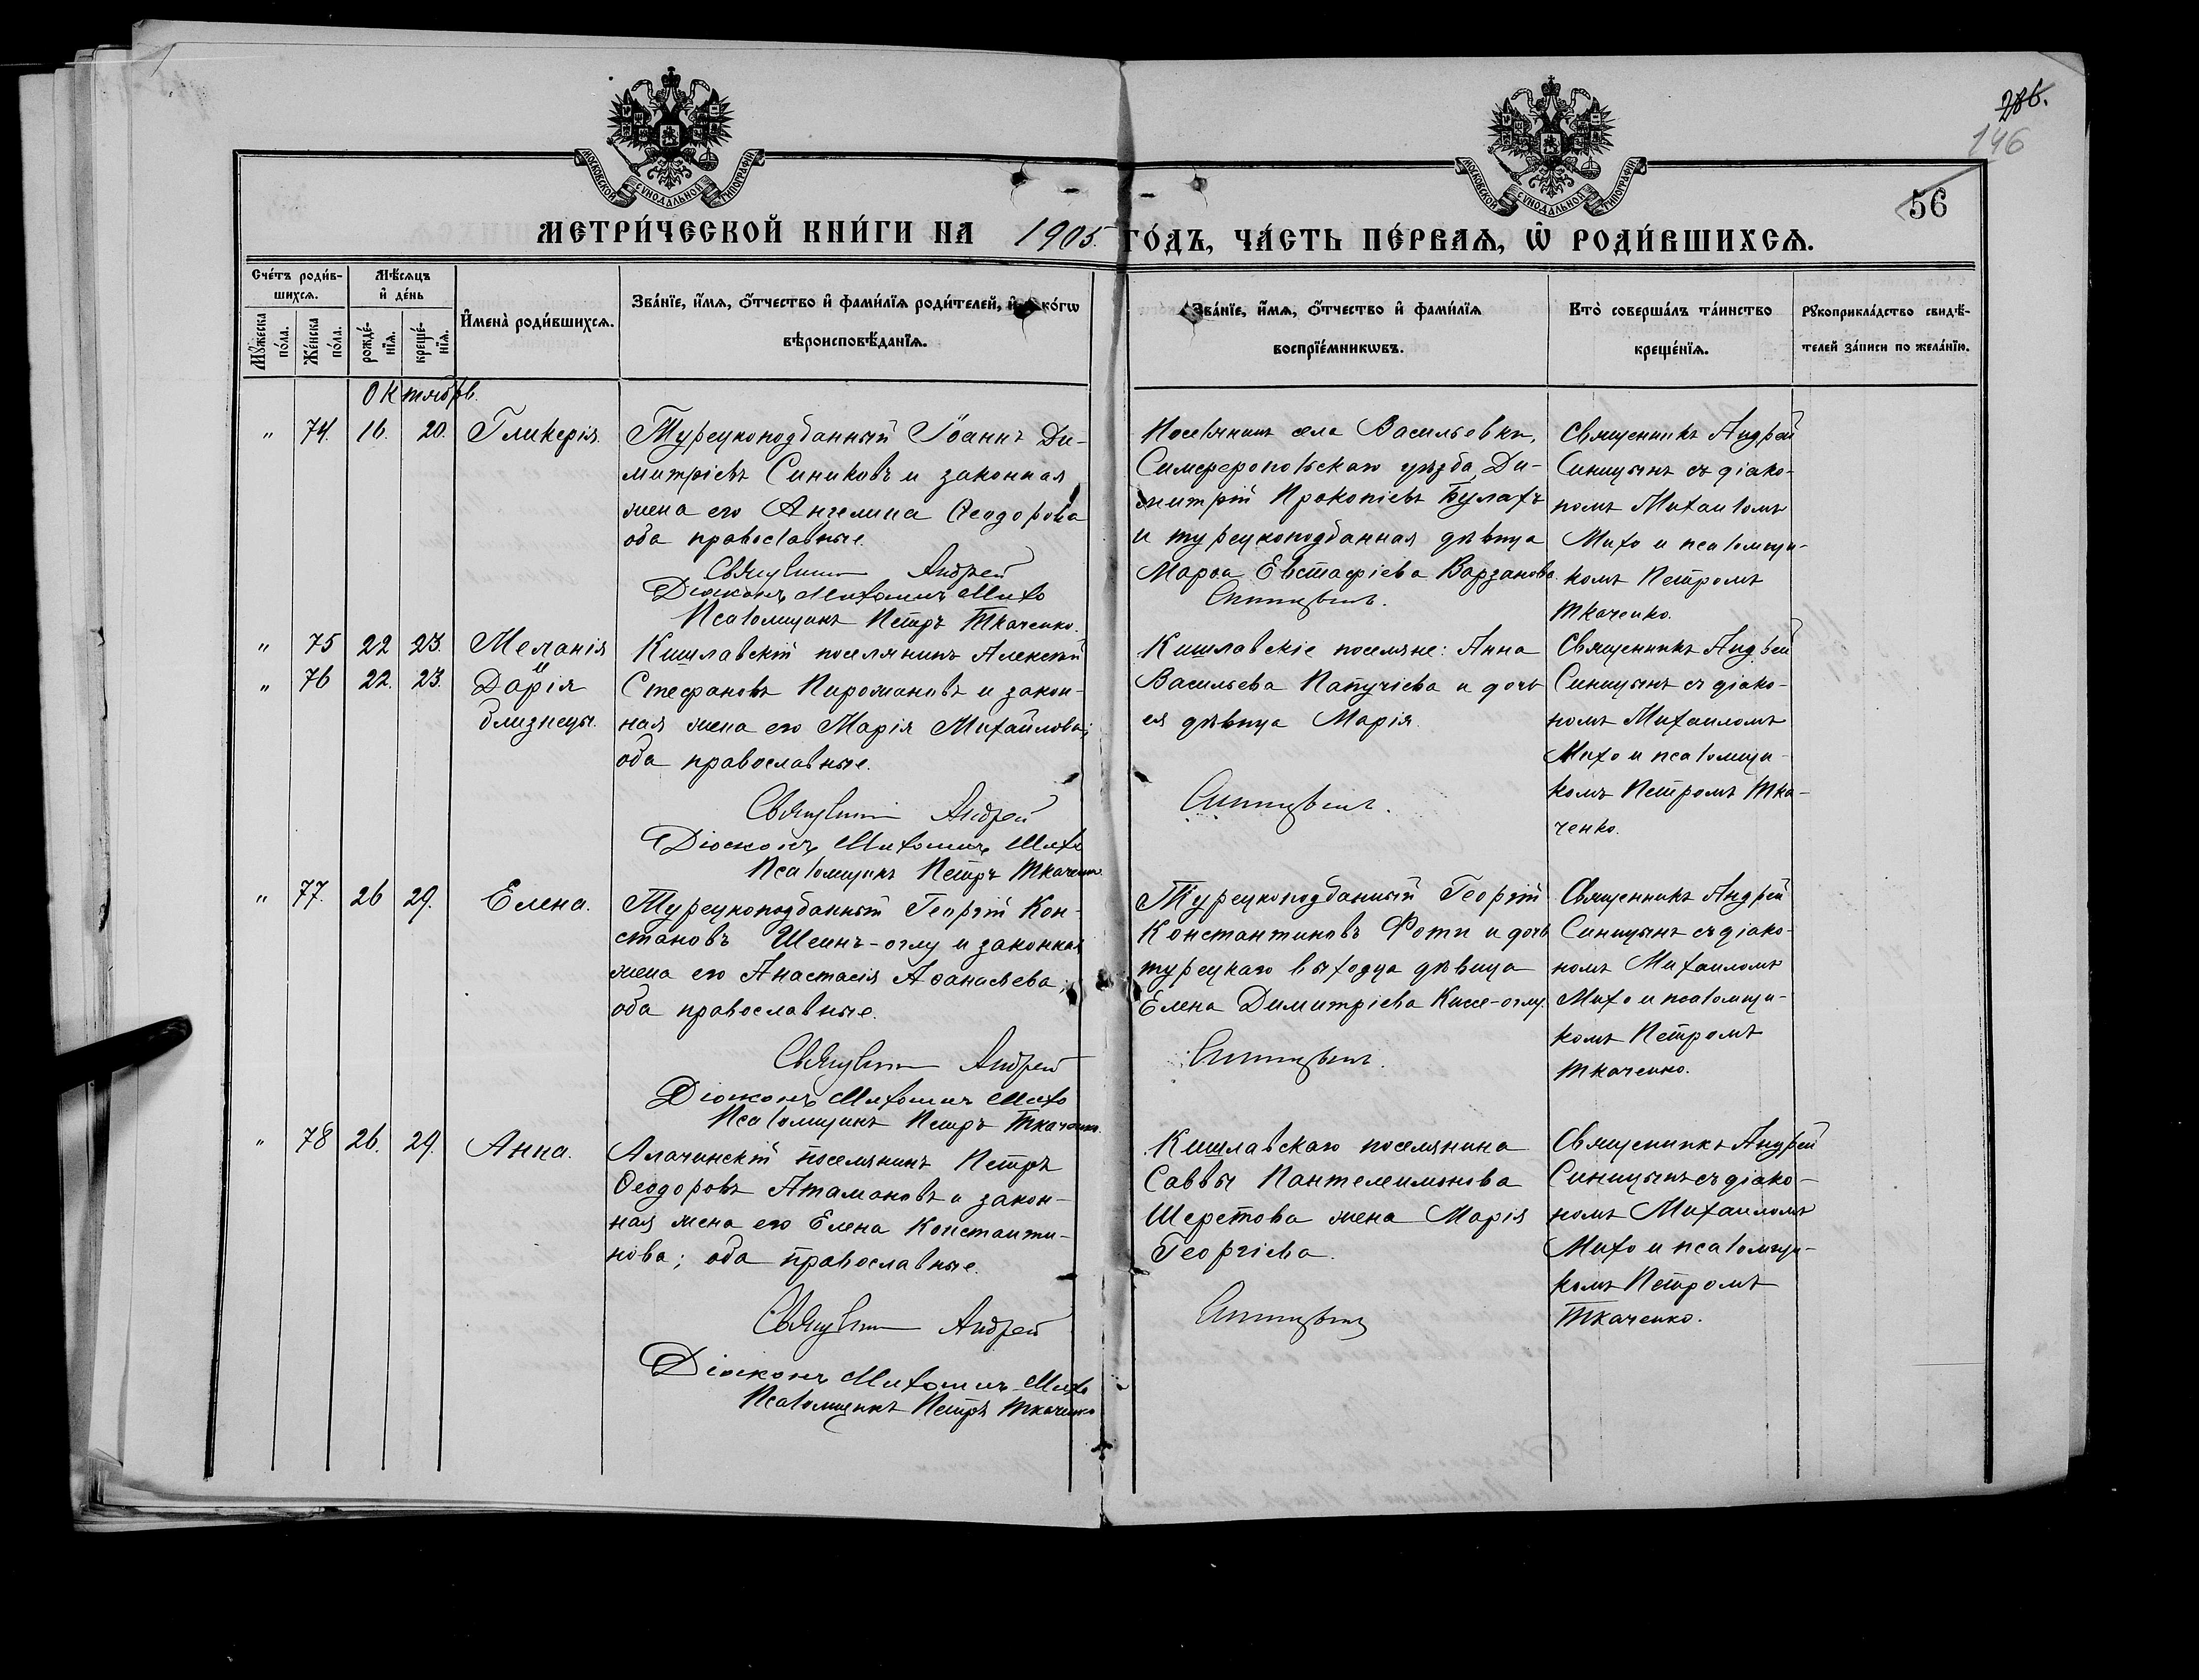 286.
146
56
МОСКОВСКОЙ СѴНОДАЛЬНОЙ ТИПОГРАФІИ
МОСКОВСКОЙ СѴНОДАЛЬНОЙ ТИПОГРАФІИ
МЕТРИ́ЧЕСКОЙ КНИ́ГИ НА 1905. ГО́ДЪ, ЧА́СТЬ ПЕ́РВАѦ, Ѽ РОДИ́ВШИХСѦ.
Сче́тъ роди́в-
шихсѧ.
Мѣ́сѧцъ
и҆ де́нь
Мꙋ́жеска
по́ла.
Же́нска
по́ла.
рожде́-
нїѧ.
креще́-
нїѧ.
И҆мена̀ роди́вшихсѧ.
Зва́нїе, и҆́мѧ, ѻ҆́тчество и҆ фами́лїѧ роди́телей, и҆ ко́гѡ
вѣроисповѣ́данїѧ.
Зва́нїе, и҆́мѧ, ѻ҆́тчество и҆ фами́лїѧ
воспрїе́мникѡвъ.
Кто̀ соверша́лъ та́инство
креще́нїѧ.
Рꙋкоприкла́дство свидѣ́-
телей за́писи по жела́нїю.
Октябрь.
" 74. 16. 20. Гликерія.
Турецкоподданный Іоаннъ Ди-
митріевъ Синиковъ и законная
жена его Ангелина Ѳеодорова
оба православные.
Священникъ Андрей
Діаконъ Михаилъ Михо
Псаломщикъ Петръ Ткаченко.
Поселянинъ села Васильевки,
Симферопольскаго уѣзда, Ди-
митрій Прокопіевъ Булахъ
и турецкоподданная дѣвица
Марѳа Евстафіева Варзанова.
Синицынъ.
Священникъ Андрей
Синицынъ съ діако-
номъ Михаиломъ
Михо и псаломщи-
комъ Петромъ
Ткаченко.
" 75 22 23. Меланія
и
" 76 22. 23. Дарія
близнецы.
Кишлавскій поселянинъ Алексѣй
Стефановъ Пироманов и закон-
ная жена его Марія Михайлова;
оба православные.
Священникъ Андрей
Діаконъ Михаилъ Михо
Псаломщикъ Петръ Ткаченко.
Кишлавскіе поселяне: Анна
Васильева Папучіева и дочь
ея дѣвица Марія.
Синицынъ.
Священникъ Андрей
Синицынъ съ діако-
номъ Михаиломъ
Михо и псаломщи-
комъ Петромъ Тка-
ченко.
" 77. 26 29. Елена.
Турецкоподданный Георгій Кон-
становъ Шеинъ-оглу и законная
жена его Анастасія Аѳанасьева;
оба православные.
Священникъ Андрей
Діаконъ Михаилъ Михо
Псаломщикъ Петръ Ткаченко.
Турецкоподданный Георгій
Константиновъ Фоти и дочь
турецкаго выходца дѣвица
Елена Димитріева Киссе-оглу.
Синицынъ.
Священникъ Андрей
Синицынъ съ діако-
номъ Михаиломъ
Михо и псаломщи-
комъ Петромъ
Ткаченко.
" 78 26. 29. Анна.
Алачинскій поселянинъ Петръ
Ѳеодоровъ Атамановъ и закон-
ная жена его Елена Константи-
нова; оба православные.
Священникъ Андрей
Діаконъ Михаилъ Михо
Псаломщикъ Петръ Ткаченко
Кишлавскаго поселянина
Саввы Пантелеимонова
Шерстова жена Марія
Георгіева.
Синицынъ
Священникъ Андрей
Синицынъ съ діако-
номъ Михаиломъ
Михо и псаломщи-
комъ Петромъ
Ткаченко.